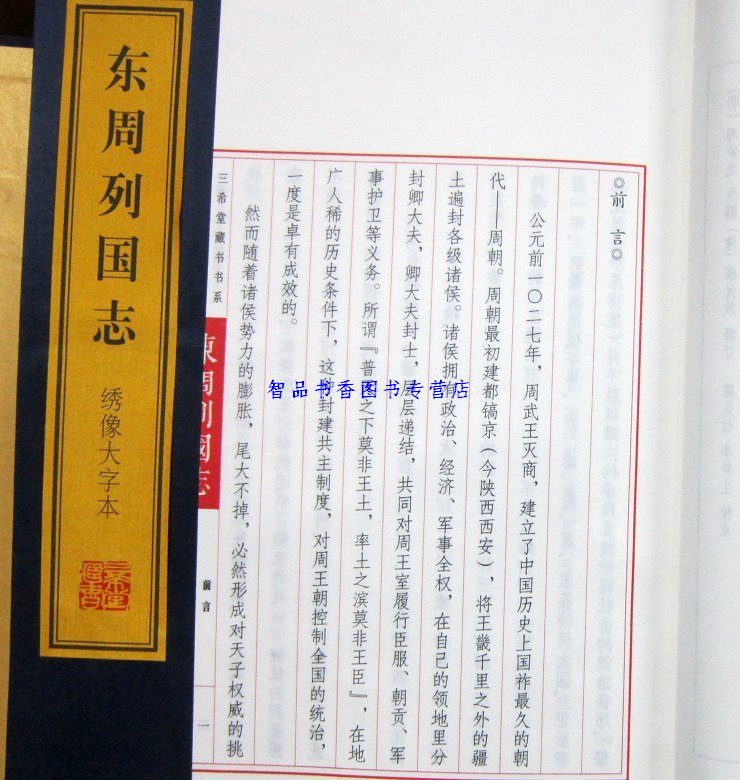 东周列国志
绣像大字本
◎前言◎
公元前一〇二七年，周武王灭商，建立了中国历史上国祚最久的朝
代——周朝。周朝最初建都镐京（今陕西西安），将王畿千里之外的疆
土遍封各级诸侯。诸侯拥有政治、经济、军事全权，在自己的领地里分
封卿大夫，卿大夫封士，层层递结，共同对周王室履行臣服、朝贡、军
事护卫等义务。所谓『普天之下莫非王土，率土之滨莫非王臣』，在地
广人稀的历史条件下，这种封建共主制度，对周王朝控制全国的统治，
一度是卓有成效的。
然而随着诸侯势力的膨胀，尾大不掉，必然形成对天子权威的挑
三希堂藏书书系
東周列國志
前言
一
智品书香图书专营店